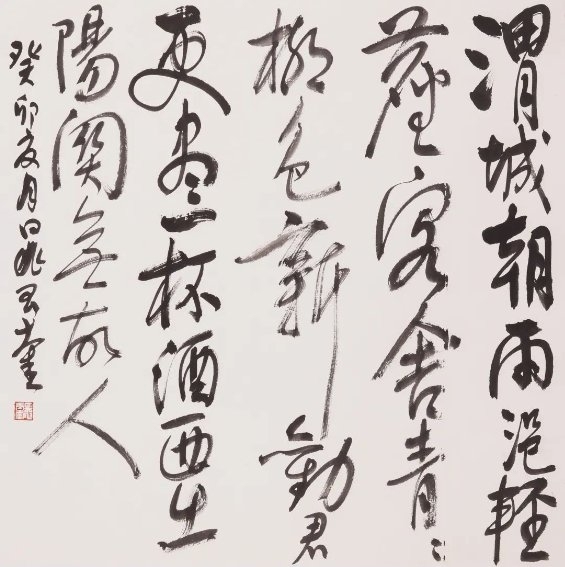 渭城朝雨浥輕
塵客舍青〻
柳色新勸君
更盡一杯酒西出
陽關無故人
癸卯夏月